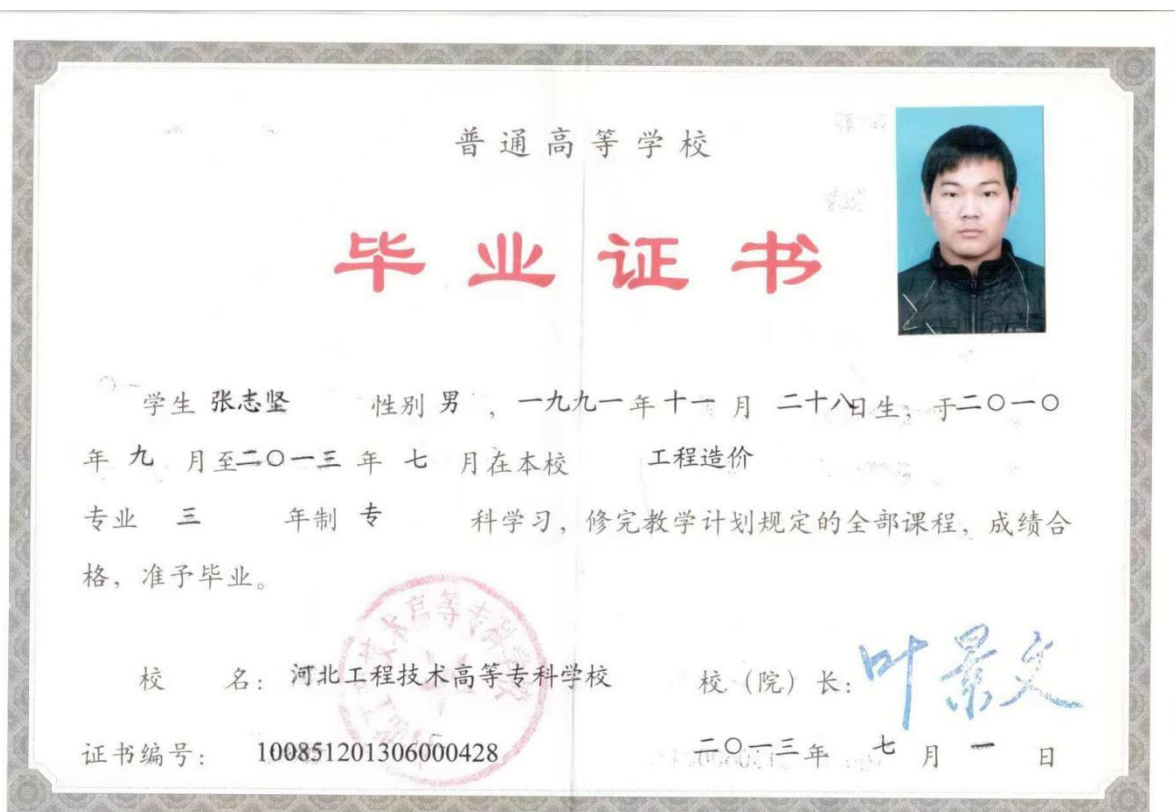 普通高等学校
毕业证书
学生 张志坚 性别 男 ,一九九一年十一月 二十八日生,于二〇一〇
年 九 月至二〇一三 年 七 月在本校 工程造价
专业 三 年制 专 科学习,修完教学计划规定的全部课程,成绩合
格,准予毕业。
校 名: 河北工程技术高等专科学校 校(院)长: 叶景文
证书编号: 100851201306000428 二〇一三年 七 月 一 日